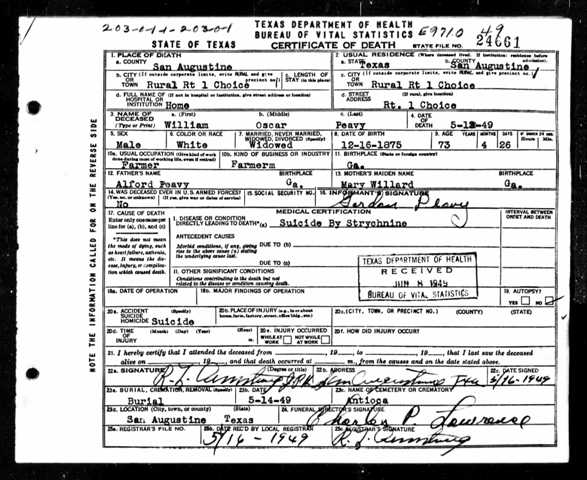 203-011-20301
TEXAS DEPARTMENT OF HEALTH
BUREAU OF VITAL STATISTICS
E9710
49
STATE OF TEXAS
CERTIFICATE OF DEATH
STATE FILE NO.
24661
NOTE THE INFORMATION CALLED FOR ON THE REVERSE SIDE
1. PLACE OF DEATH
a. COUNTY
San Augustine
2. USUAL RESIDENCE (Where deceased lived. If institution: residence before admission)
a. STATE
Texas
b. COUNTY
San Augustine
b. CITY (If outside corporate limits, write RURAL and give precinct no.)
OR TOWN
Rural Rt 1 Choice
c. LENGTH OF STAY (in this place)
c. CITY (If outside corporate limits, write RURAL and give precinct no.)
OR TOWN
Rural Rt 1 Choice
d. FULL NAME OF (If not in hospital or institution, give street address or location)
HOSPITAL OR INSTITUTION
Home
d. STREET ADDRESS (If rural, give location)
Rt. 1 Choice
3. NAME OF DECEASED
(Type or Print)
a. (First)
William
b. (Middle)
Oscar
c. (Last)
Peavy
4. DATE OF DEATH
5-12-49
5. SEX
Male
6. COLOR OR RACE
White
7. MARRIED, NEVER MARRIED, WIDOWED, DIVORCED (Specify)
Widowed
8. DATE OF BIRTH
12-16-1875
9. AGE
YEARS
73
MONTHS
4
DAYS
26
10a. USUAL OCCUPATION (Give kind of work done during most of working life, even if retired)
Farmer
10b. KIND OF BUSINESS OR INDUSTRY
Farmerm
11. BIRTHPLACE (State or foreign country)
Ga.
12. FATHER'S NAME
Alford Peavy
BIRTHPLACE
Ga.
13. MOTHER'S MAIDEN NAME
Mary Willard
BIRTHPLACE
Ga.
14. WAS DECEASED EVER IN U.S. ARMED FORCES?
(Yes, no, or unknown) (If yes, give war or dates of service)
No
15. SOCIAL SECURITY NO.
16. INFORMANT'S SIGNATURE
Peavy
17. CAUSE OF DEATH
Enter only one cause per line for (a), (b), and (c)
*This does not mean the mode of dying, such as heart failure, asthenia, etc. It means the disease, injury, or complication which caused death.
MEDICAL CERTIFICATION
I. DISEASE OR CONDITION DIRECTLY LEADING TO DEATH*(a)
Suicide By Strychnine
INTERVAL BETWEEN ONSET AND DEATH
ANTECEDENT CAUSES
Morbid conditions, if any, giving rise to the above cause (a) stating the underlying cause last.
DUE TO (b)
DUE TO (c)
II. OTHER SIGNIFICANT CONDITIONS
Conditions contributing to the death but not related to the disease or condition causing death.
TEXAS DEPARTMENT OF HEALTH
RECEIVED
JUN 8 1949
BUREAU OF VITAL STATISTICS
18a. DATE OF OPERATION
18b. MAJOR FINDINGS OF OPERATION
19. AUTOPSY?
YES NO
20a. ACCIDENT SUICIDE HOMICIDE (Specify)
Suicide
20b. PLACE OF INJURY (e.g., in or about home, farm, factory, street, office bldg., etc.)
20c. (CITY, TOWN, OR PRECINCT NO.) (COUNTY) (STATE)
20d. TIME OF INJURY (Month) (Day) (Year) (Hour)
20e. INJURY OCCURRED
WHILE AT WORK NOT WHILE AT WORK
20f. HOW DID INJURY OCCUR?
21. I hereby certify that I attended the deceased from , 19 , to , 19 , that I last saw the deceased
alive on , 19 , and that death occurred at m., from the causes and on the date stated above.
22a. SIGNATURE (Degree or title)
22b. ADDRESS
San Augustine Tex
22c. DATE SIGNED
5/16-1949
23a. BURIAL, CREMATION, REMOVAL (Specify)
Burial
23b. DATE
5-14-49
23c. NAME OF CEMETERY OR CREMATORY
Antioga
23d. LOCATION (City, town, or county) (State)
San Augustine Texas
24. FUNERAL DIRECTOR'S SIGNATURE
Charles P Lawrence
25a. REGISTRAR'S FILE NO.
25b. DATE REC'D BY LOCAL REGISTRAR
5/16-1949
25c. REGISTRAR'S SIGNATURE